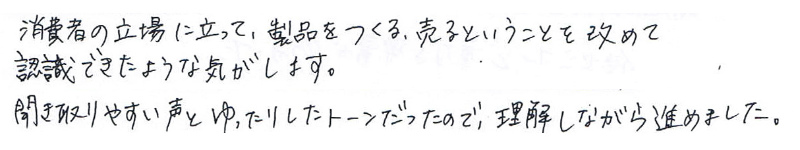 消費者の立場に立って、製品をつくる、売るということを改めて
認識できたような気がします。
聞き取りやすい声とゆったりしたトーンだったので、理解しながら進めました。